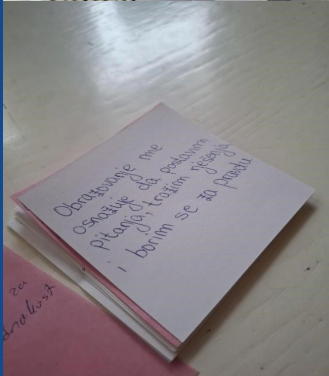 Obrazovanje me
osnažuje da postavim
pitanja, tražim rješenja
i borim se za pravdu
za